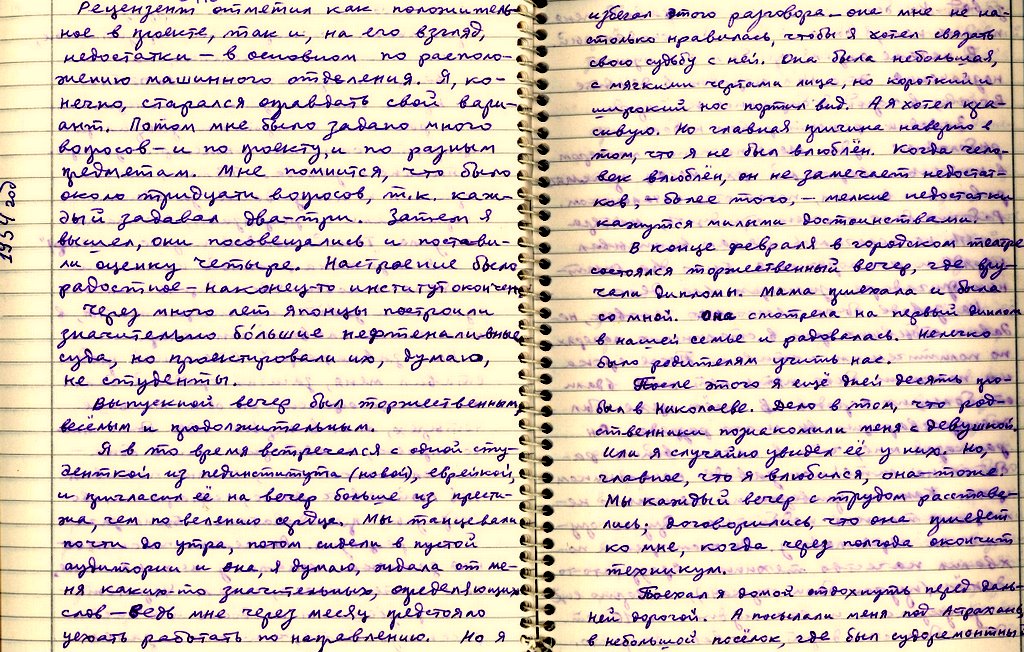 Рецензент отметил как положитель-
ное в проекте, так и, на его взгляд,
недостатки – в основном по располо-
жению машинного отделения. Я, ко-
нечно, старался оправдать свой вари-
ант. Потом мне было задано много
вопросов – и по проекту, и по разным
предметам. Мне помнится, что было
около тридцати вопросов, т.к. каж-
дый задавал два-три. Затем я
вышел, они посовещались и постави-
ли оценку четыре. Настроение было
радостное – наконец-то институт окончен.
Через много лет японцы построили
значительно бо́льшие нефтеналивные
суда, но проектировали их, думаю,
не студенты.
Выпускной вечер был торжественным,
весёлым и продолжительным.
Я в это время встречался с одной сту-
денткой из пединститута (новой), еврейкой,
и пригласил её на вечер больше из прести-
жа, чем по велению сердца. Мы танцевали
почти до утра, потом сидели в пустой
аудитории и она, я думаю, ждала от ме-
ня каких-то значительных, определяющих
слов – ведь мне через месяц предстояло
уехать работать по направлению. Но я
1954 год
избегал этого разговора – она мне не на-
столько нравилась, чтобы я хотел связать
свою судьбу с ней. Она была небольшая,
с мягкими чертами лица, но короткий и
широкий нос портил вид. А я хотел кра-
сивую. Но главная причина наверно в
том, что я не был влюблён. Когда чело-
век влюблён, он не замечает недостат-
ков, – более того, – мелкие недостатки
кажутся милыми достоинствами.
В конце февраля в городском театре
состоялся торжественный вечер, где вру-
чали дипломы. Мама приехала и была
со мной. Она смотрела на первый диплом
в нашей семье и радовалась. Нелегко
было родителям учить нас.
После этого я ещё дней десять про-
был в Николаеве. Дело в том, что род-
ственники познакомили меня с девушкой.
Или я случайно увидел её у них. Но,
главное, что я влюбился, она – тоже.
Мы каждый вечер с трудом расстава-
лись; договорились, что она приедет
ко мне, когда через полгода окончит
техникум.
Поехал я домой отдохнуть перед даль-
ней дорогой. А посылали меня под Астрахань
в небольшой посёлок, где был судоремонтны